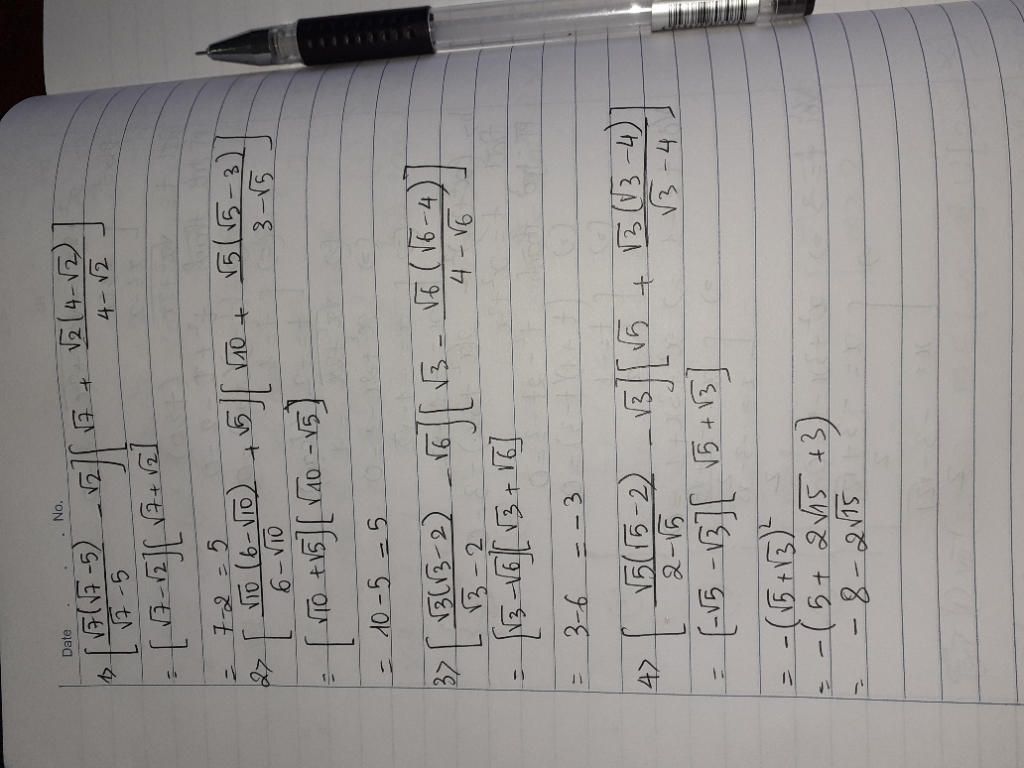 Date No.
1> [√7(√7-5)/√7-5 - √2][√7 + √2(4-√2)/4-√2]
= [√7-√2][√7+√2]
= 7-2 = 5
2> [√10(6-√10)/6-√10 + √5][√10 + √5(√5-3)/3-√5]
= [√10+√5][√10-√5]
= 10-5 = 5
3> [√3(√3-2)/√3-2 - √6][√3 - √6(√6-4)/4-√6]
= [√3-√6][√3+√6]
= 3-6 = -3
4> [√5(√5-2)/2-√5 - √3][√5 + √3(√3-4)/√3-4]
= [-√5-√3][√5+√3]
= -(√5+√3)²
= -(5+2√15+3)
= -8-2√15